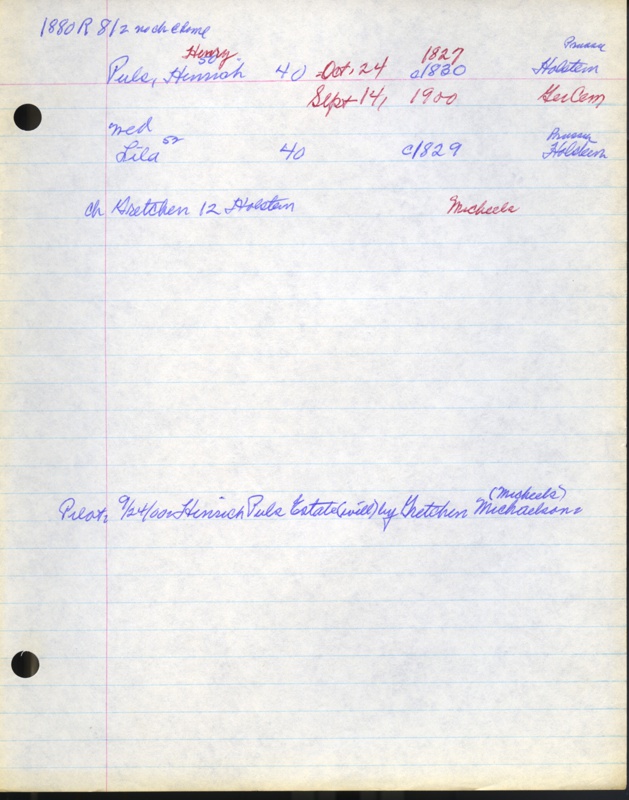 1880 R 8/2 no ch @ home
Henry 1827 Prussia
50
Puls, Hinrich 40 Oct, 24 c1830 Holstein
Sept 14, 1900 GerCem
wed Prussia
Lila 52 40 c1829 Holstein
ch Gretchen 12 Holstein Micheels
(Micheels)
Pilot, 9/24/00 Hinrich Puls Estate (will) by Gretchen Michaelson